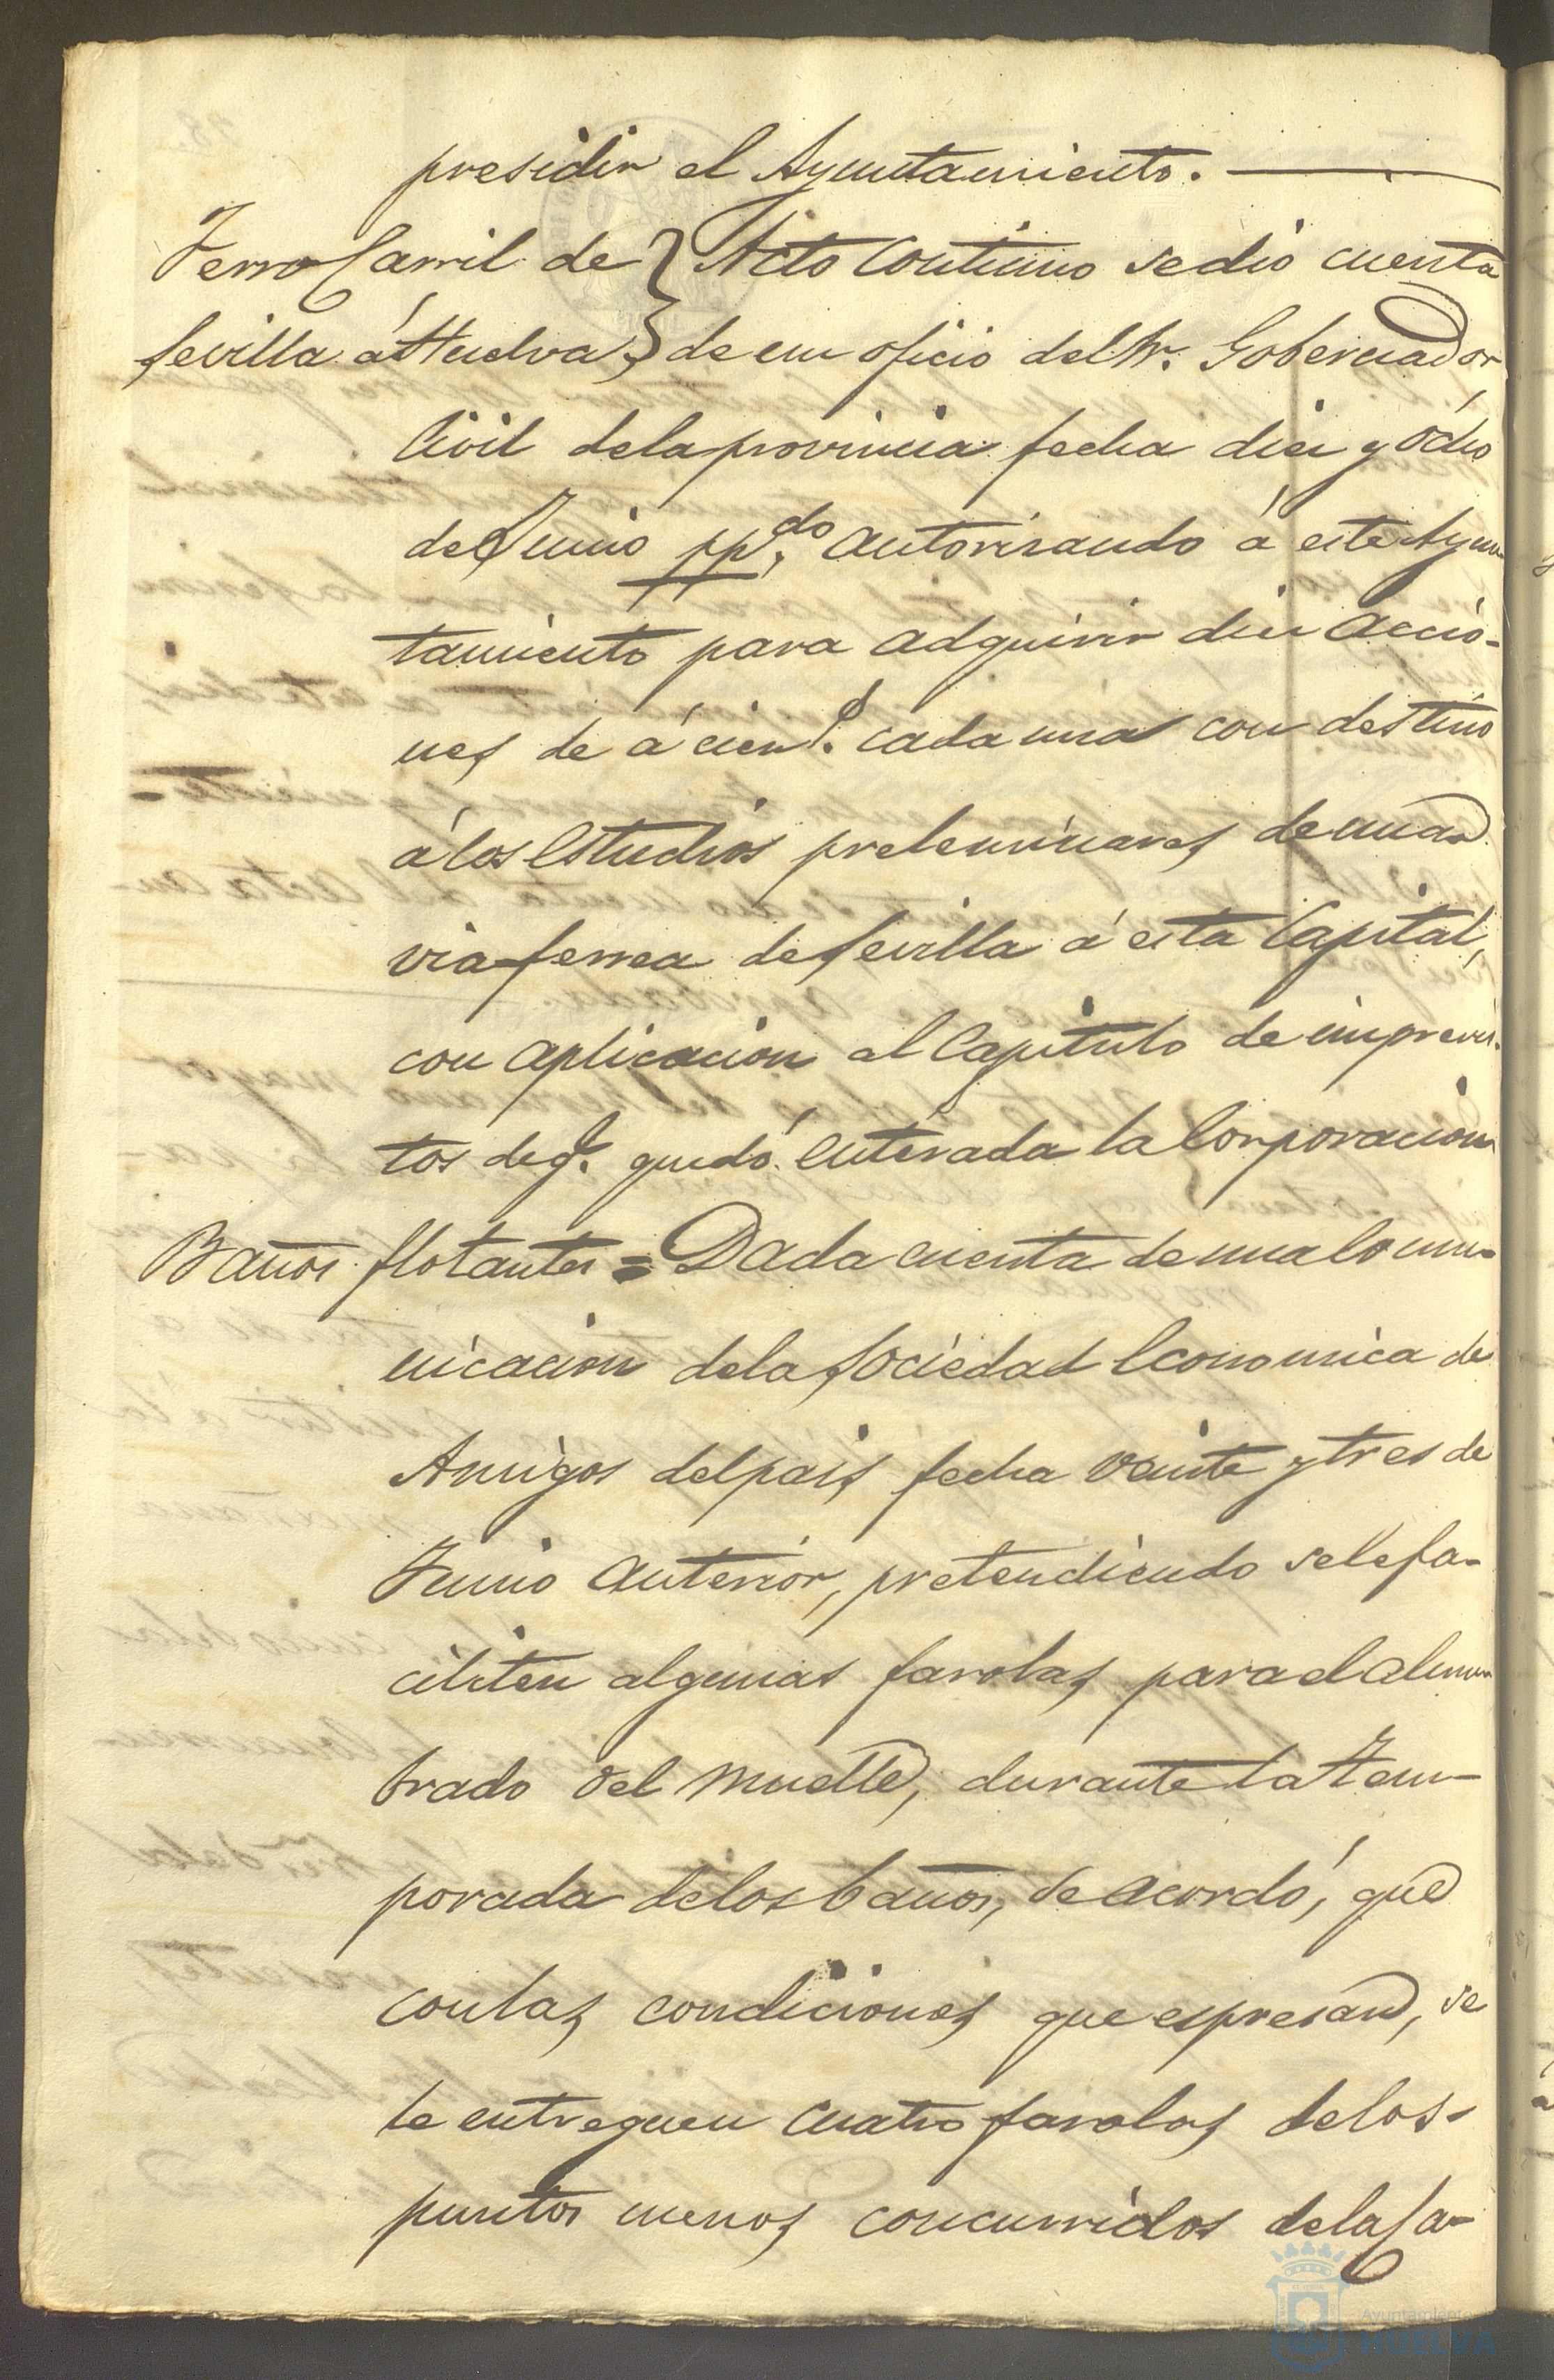 presidir el Ayuntamiento.
Ferro Carril de } Acto continuo se dió cuenta
Sevilla á Huelva } de un oficio del Sr. Gobernador
Civil de la provincia fecha diez y ócho
de Junio pp.do autorisando á este Ayun-
tamiento para adquirir diez accio-
nes de á cien cada una con destino
á los Estudios preleminares de una
via ferrea de Sevilla á esta Capital,
con aplicacion al Capitulo de imprevis-
tos de q.e quedó enterada la Corporacion
Baños flotantes = Dada cuenta de una Comu-
nicacion de la Sociedad Economica de
Amigos del pais fecha veinte y tres de
Junio anterior, pretendiendo se le fa-
ciliten algunas farolas para el alum-
brado del muelle, durante la tem-
porada de los baños, se acordó, que
con las condiciones que espresan, se
le entreguen cuatro farolas de los
puntos menos concurridos de la Ca-
Ayuntamiento
HUELVA